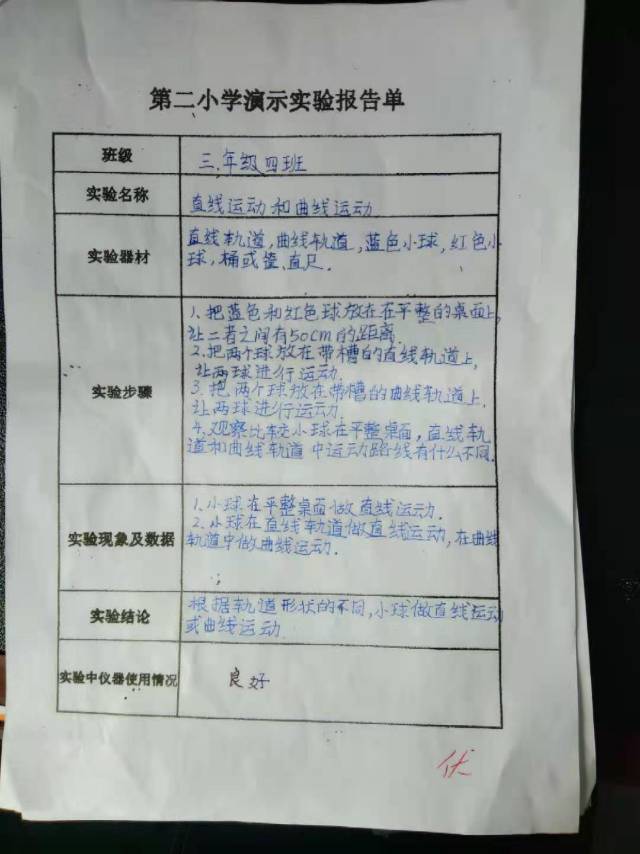 第二小学演示实验报告单
班级
三.年级四班
实验名称
直线运动和曲线运动
实验器材
直线轨道,曲线轨道,蓝色小球,红色小
球,桶或筐,直尺.
实验步骤
1.把蓝色和红色球放在在平整的桌面上,
让二者之间有50cm的距离.
2.把两个球放在带槽的直线轨道上,
让两球进行运动.
3.把两个球放在带槽的曲线轨道上.
让两球进行运动.
4.观察比较小球在平整桌面,直线轨
道和曲线轨道中运动路线有什么不同.
实验现象及数据
1.小球在平整桌面做直线运动.
2.小球在直线轨道做直线运动,在曲线
轨道中做曲线运动.
实验结论
根据轨道形状的不同,小球做直线运动
或曲线运动
实验中仪器使用情况
良好